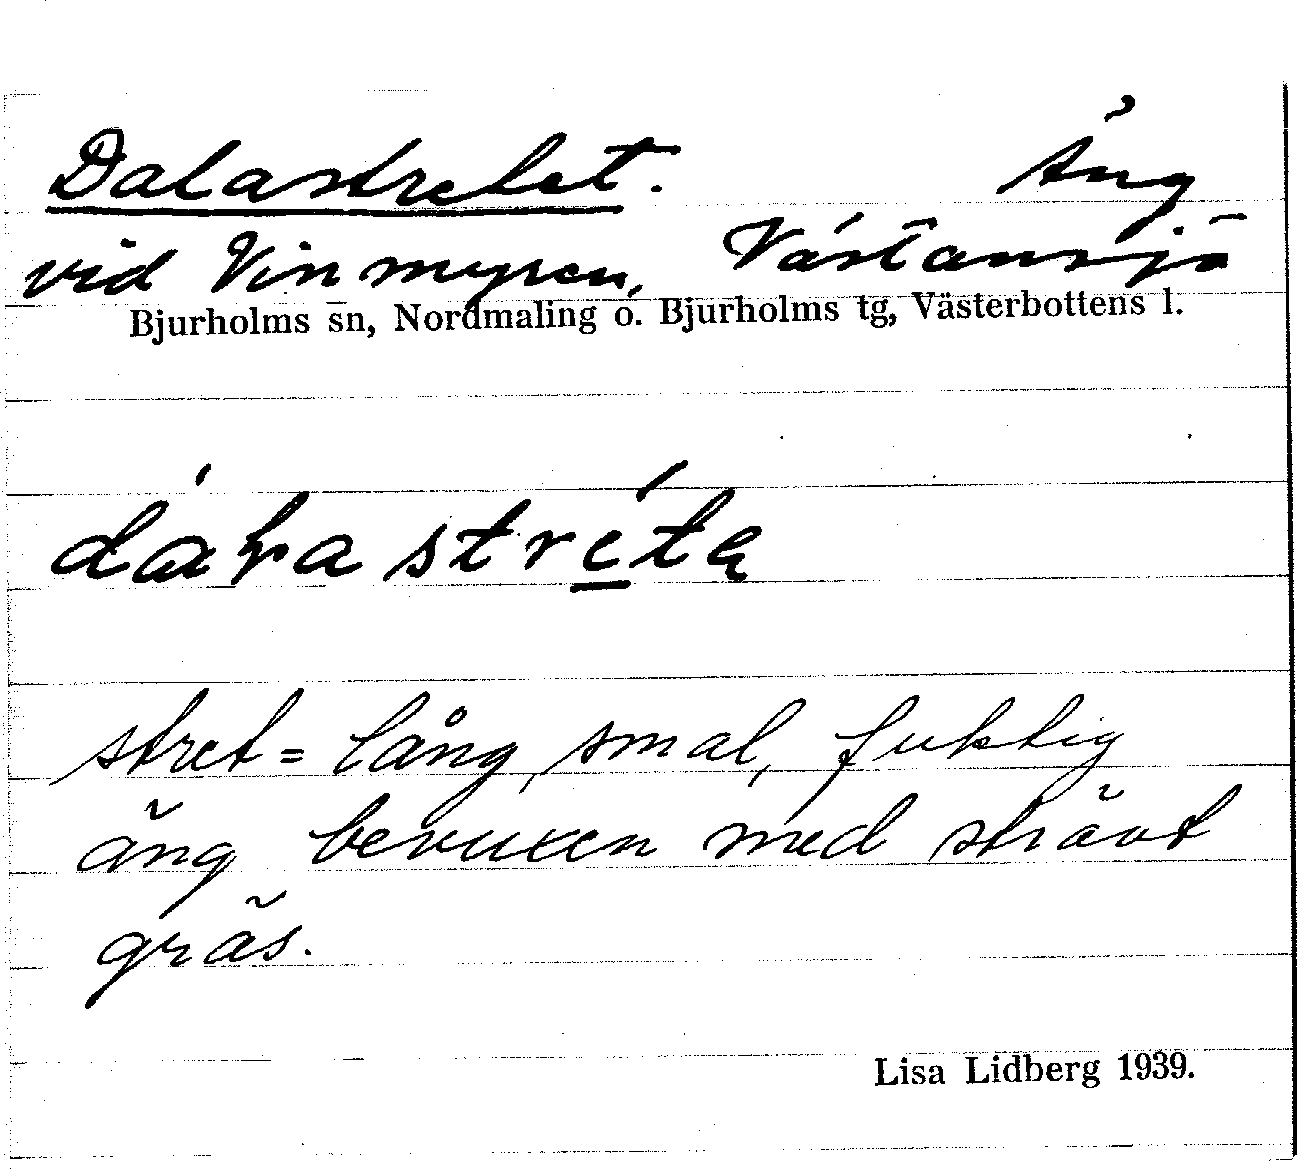 Dalastretet. Äng
vid Vinmyren, Västansjö
Bjurholms sn, Nordmaling o. Bjurholms tg, Västerbottens l.
stret = lång, smal, fuktig
äng bevuxen med strävt
gräs.
Lisa Lidberg 1939.